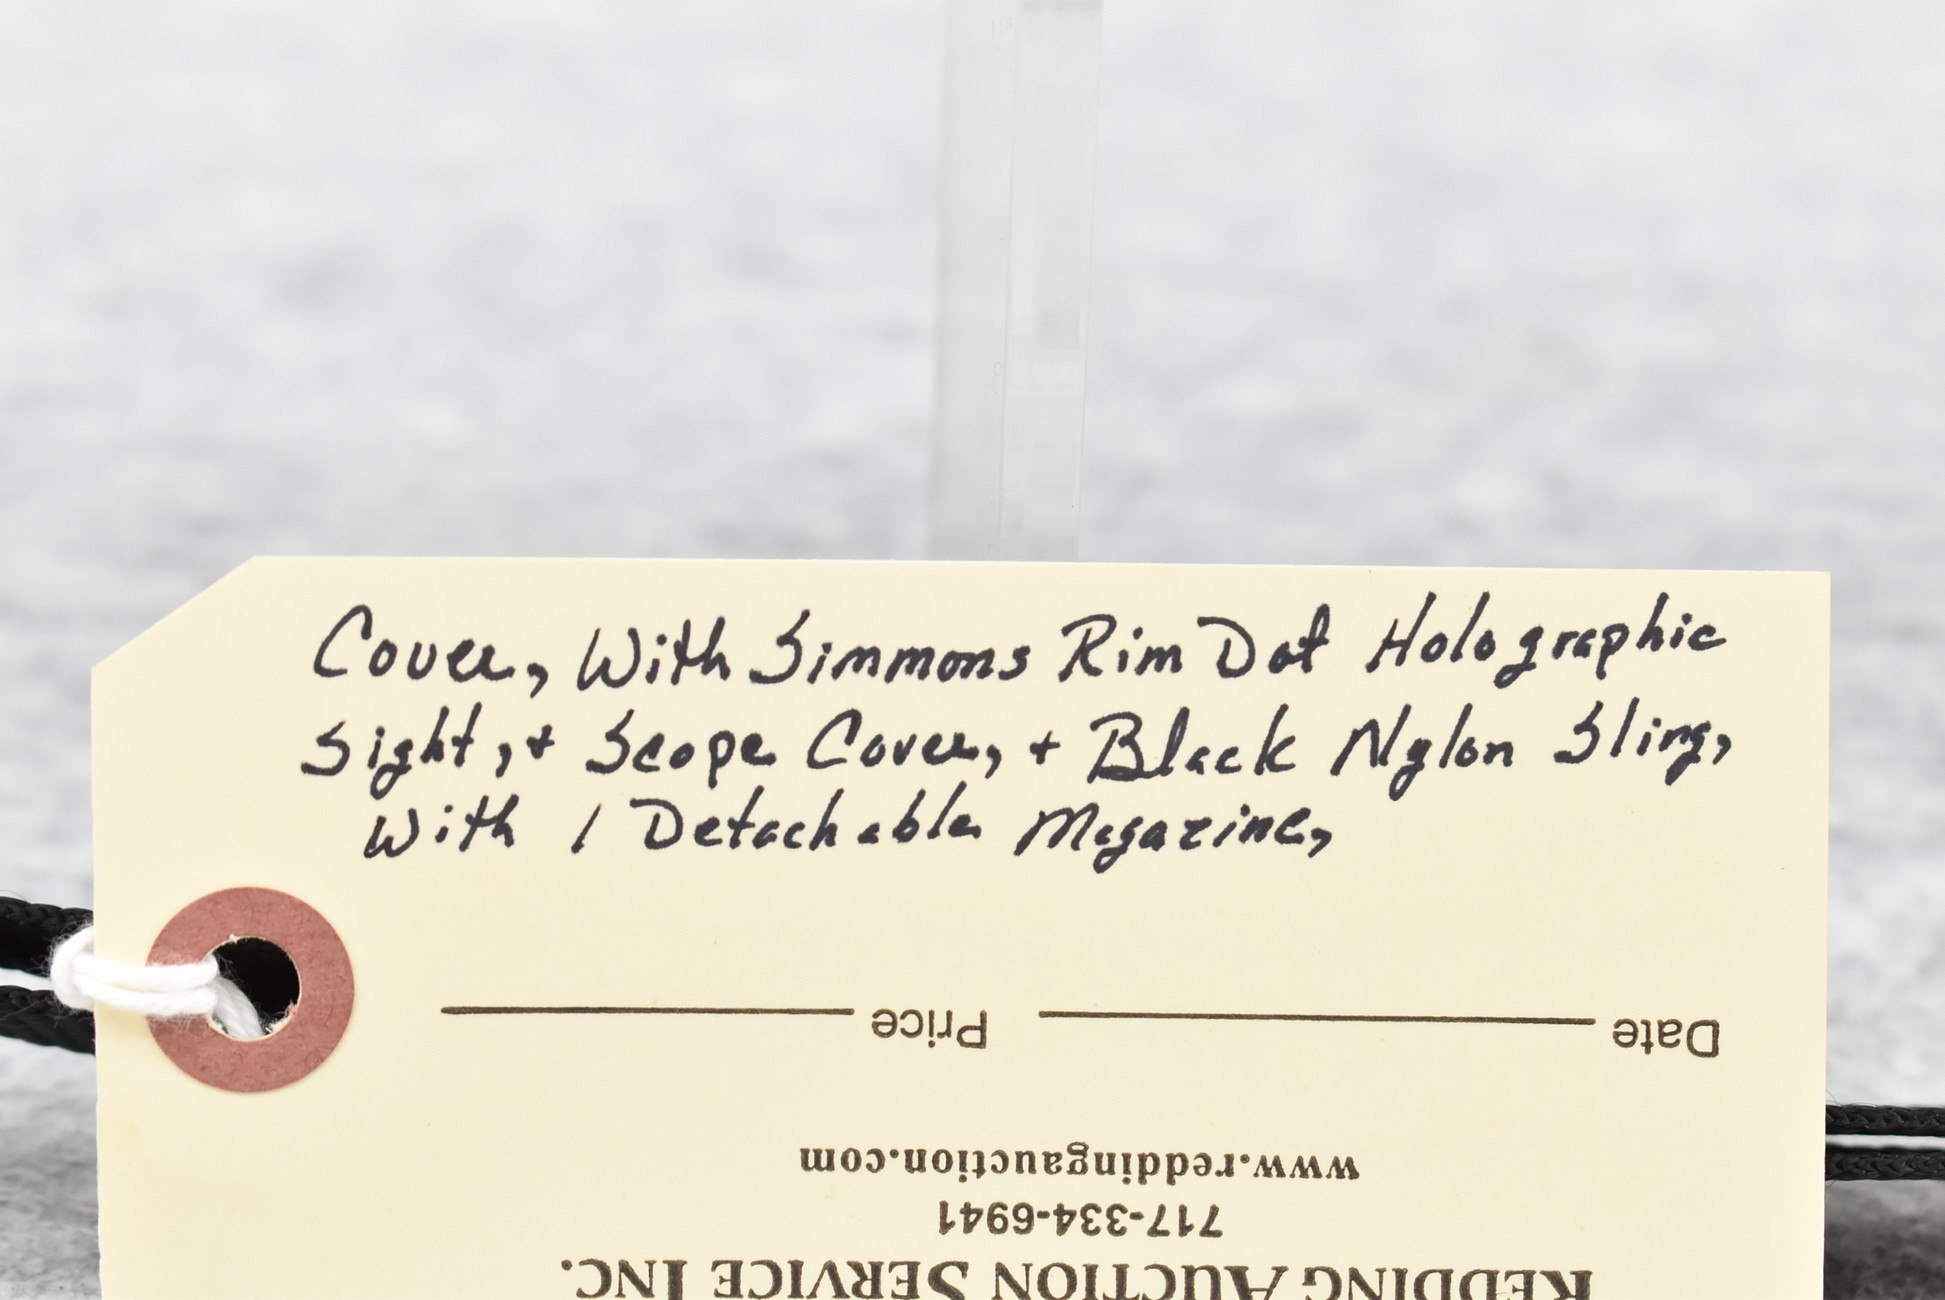 Cover, With Simmons Rim Dot Holographic
Sight, + Scope Cover, + Black Nylon Sling,
With 1 Detachable Magazine,
Date Price
www.reddingauction.com
717-334-6941
REDDING AUCTION SERVICE INC.